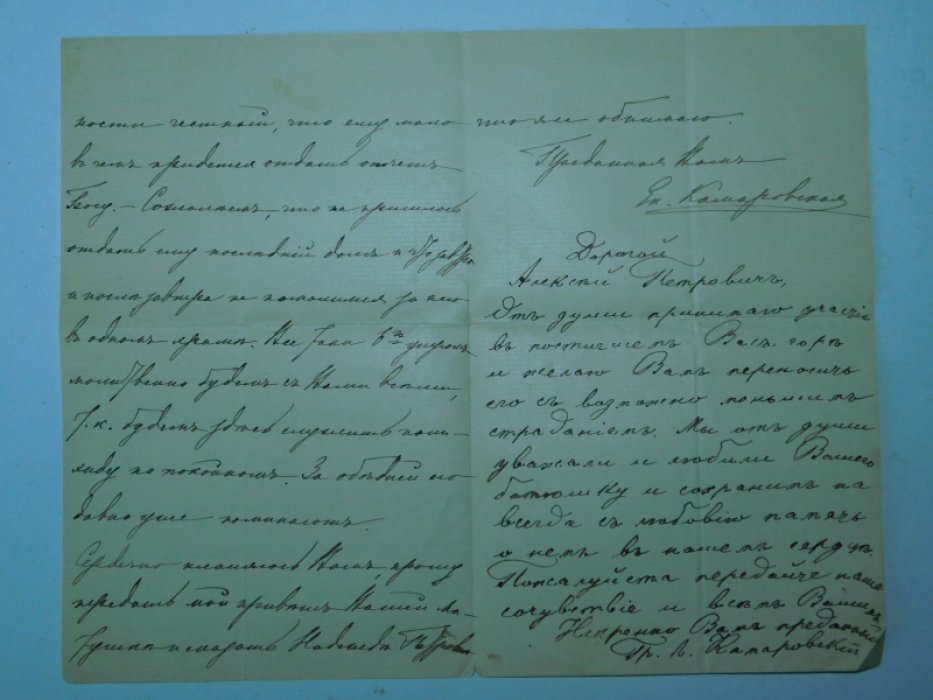 ности честный, что ему мало
въ чемъ придется отдать отчетъ
Богу. — Сожалѣемъ, что не пришлось
отдать ему послѣдній долгъ и
и послѣ завтра не помолимся за него
въ одномъ храмѣ. Но 6го утромъ
молитвенно будемъ съ Вами вмѣстѣ,
т. к. будемъ здѣсь служить пани-
хиду по покойномъ. За обѣдней его
давно уже поминаютъ.
Сердечно кланяюсь Вамъ, прошу
передать мой привѣтъ Вашей ма-
тушкѣ и сказать Надеждѣ Петровнѣ
что я ее обнимаю.
Преданная Вамъ
Ек. Камаровская
Дорогой
Алексѣй Петровичъ,
Отъ души принимаю участіе
въ постигшемъ Васъ горѣ
и желаю Вамъ переносить
его съ возможно меньшимъ
страданіемъ. Мы отъ души
уважали и любили Вашего
батюшку и сохранимъ на
всегда съ любовію память
о немъ въ нашемъ сердцѣ.
Пожалуйста передайте наше
сочувствіе и всѣмъ Вашимъ.
Искренно Вамъ преданный
Гр. Л. Камаровскій